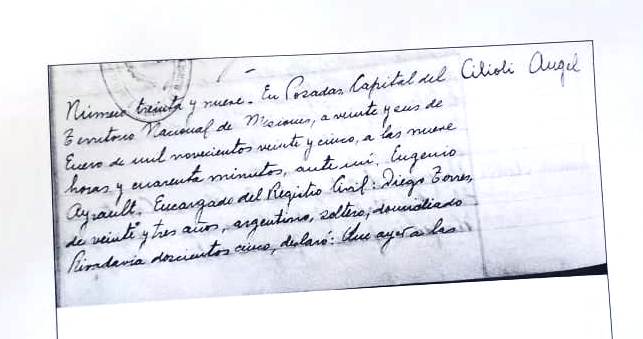 Número treinta y nueve. En Posadas Capital del
Territorio Nacional de Misiones, a veinte y seis de
Enero de mil novecientos veinte y cinco, a las nueve
horas y cuarenta minutos, ante mí, Eugenio
Ayrault, Encargado del Registro Civil: Diego Torres,
de veinte y tres años, argentino, soltero, domiciliado
Rivadavia doscientos cinco, declaró: Que ayer a las
Cilioli Angel